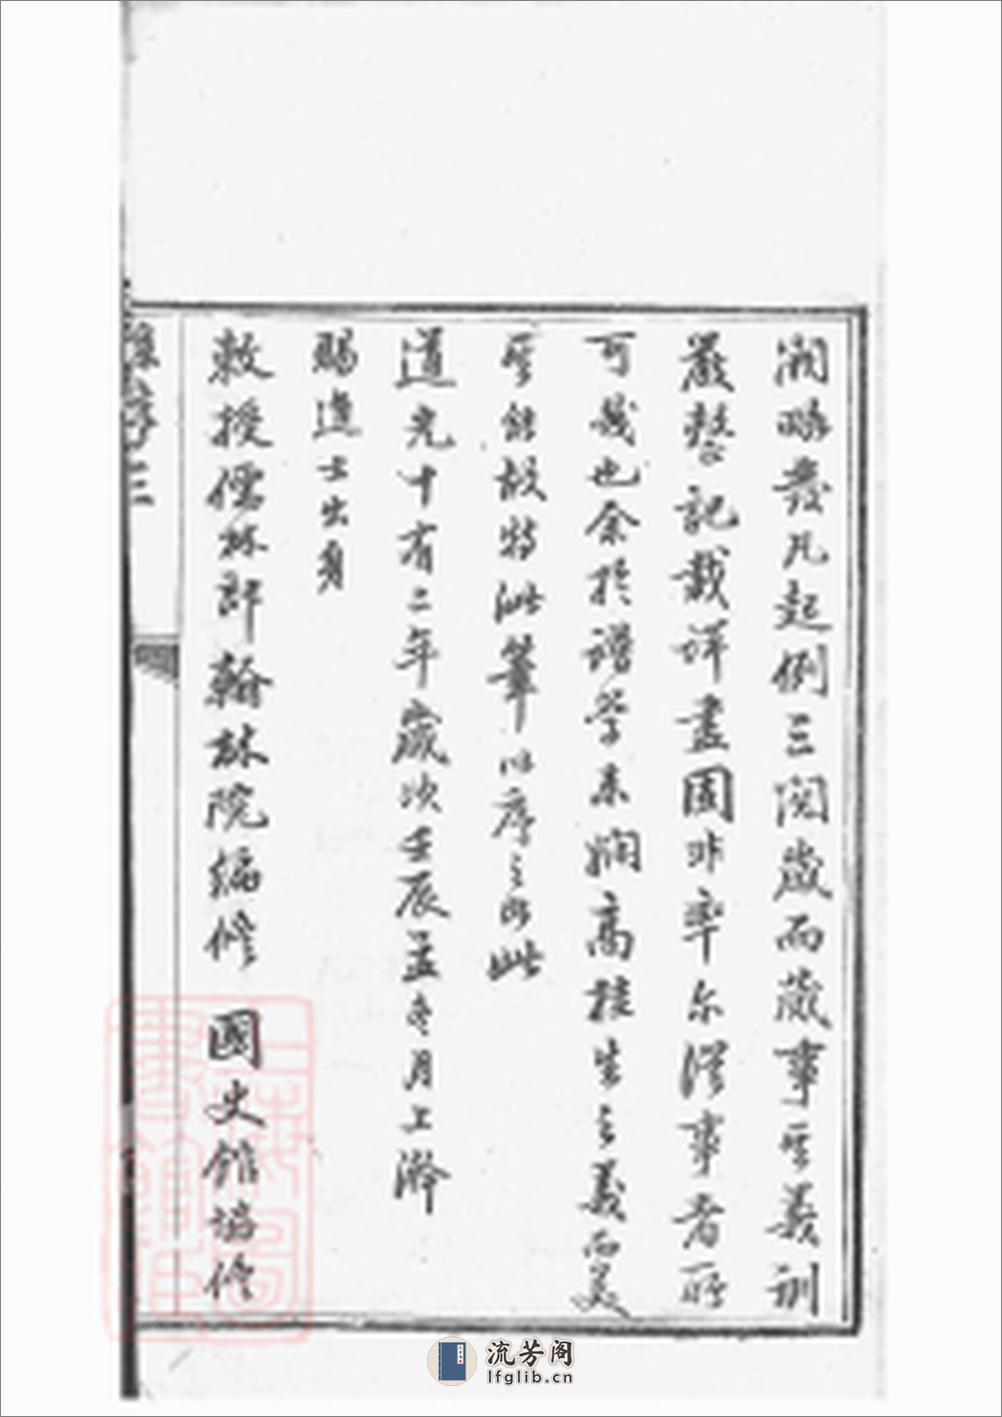 濶略發凡起例三閱歲而蕆事其義訓
嚴整記載詳盡固非率尔從事者所
可幾也余於譜學未嫻高挂生之義而美
其能故特泚筆以序之如此
道光十有二年歲次壬辰孟冬月上澣
賜進士出身
敕授儒林郎翰林院編修 國史館協修
序三
流芳阁
lfglib.cn